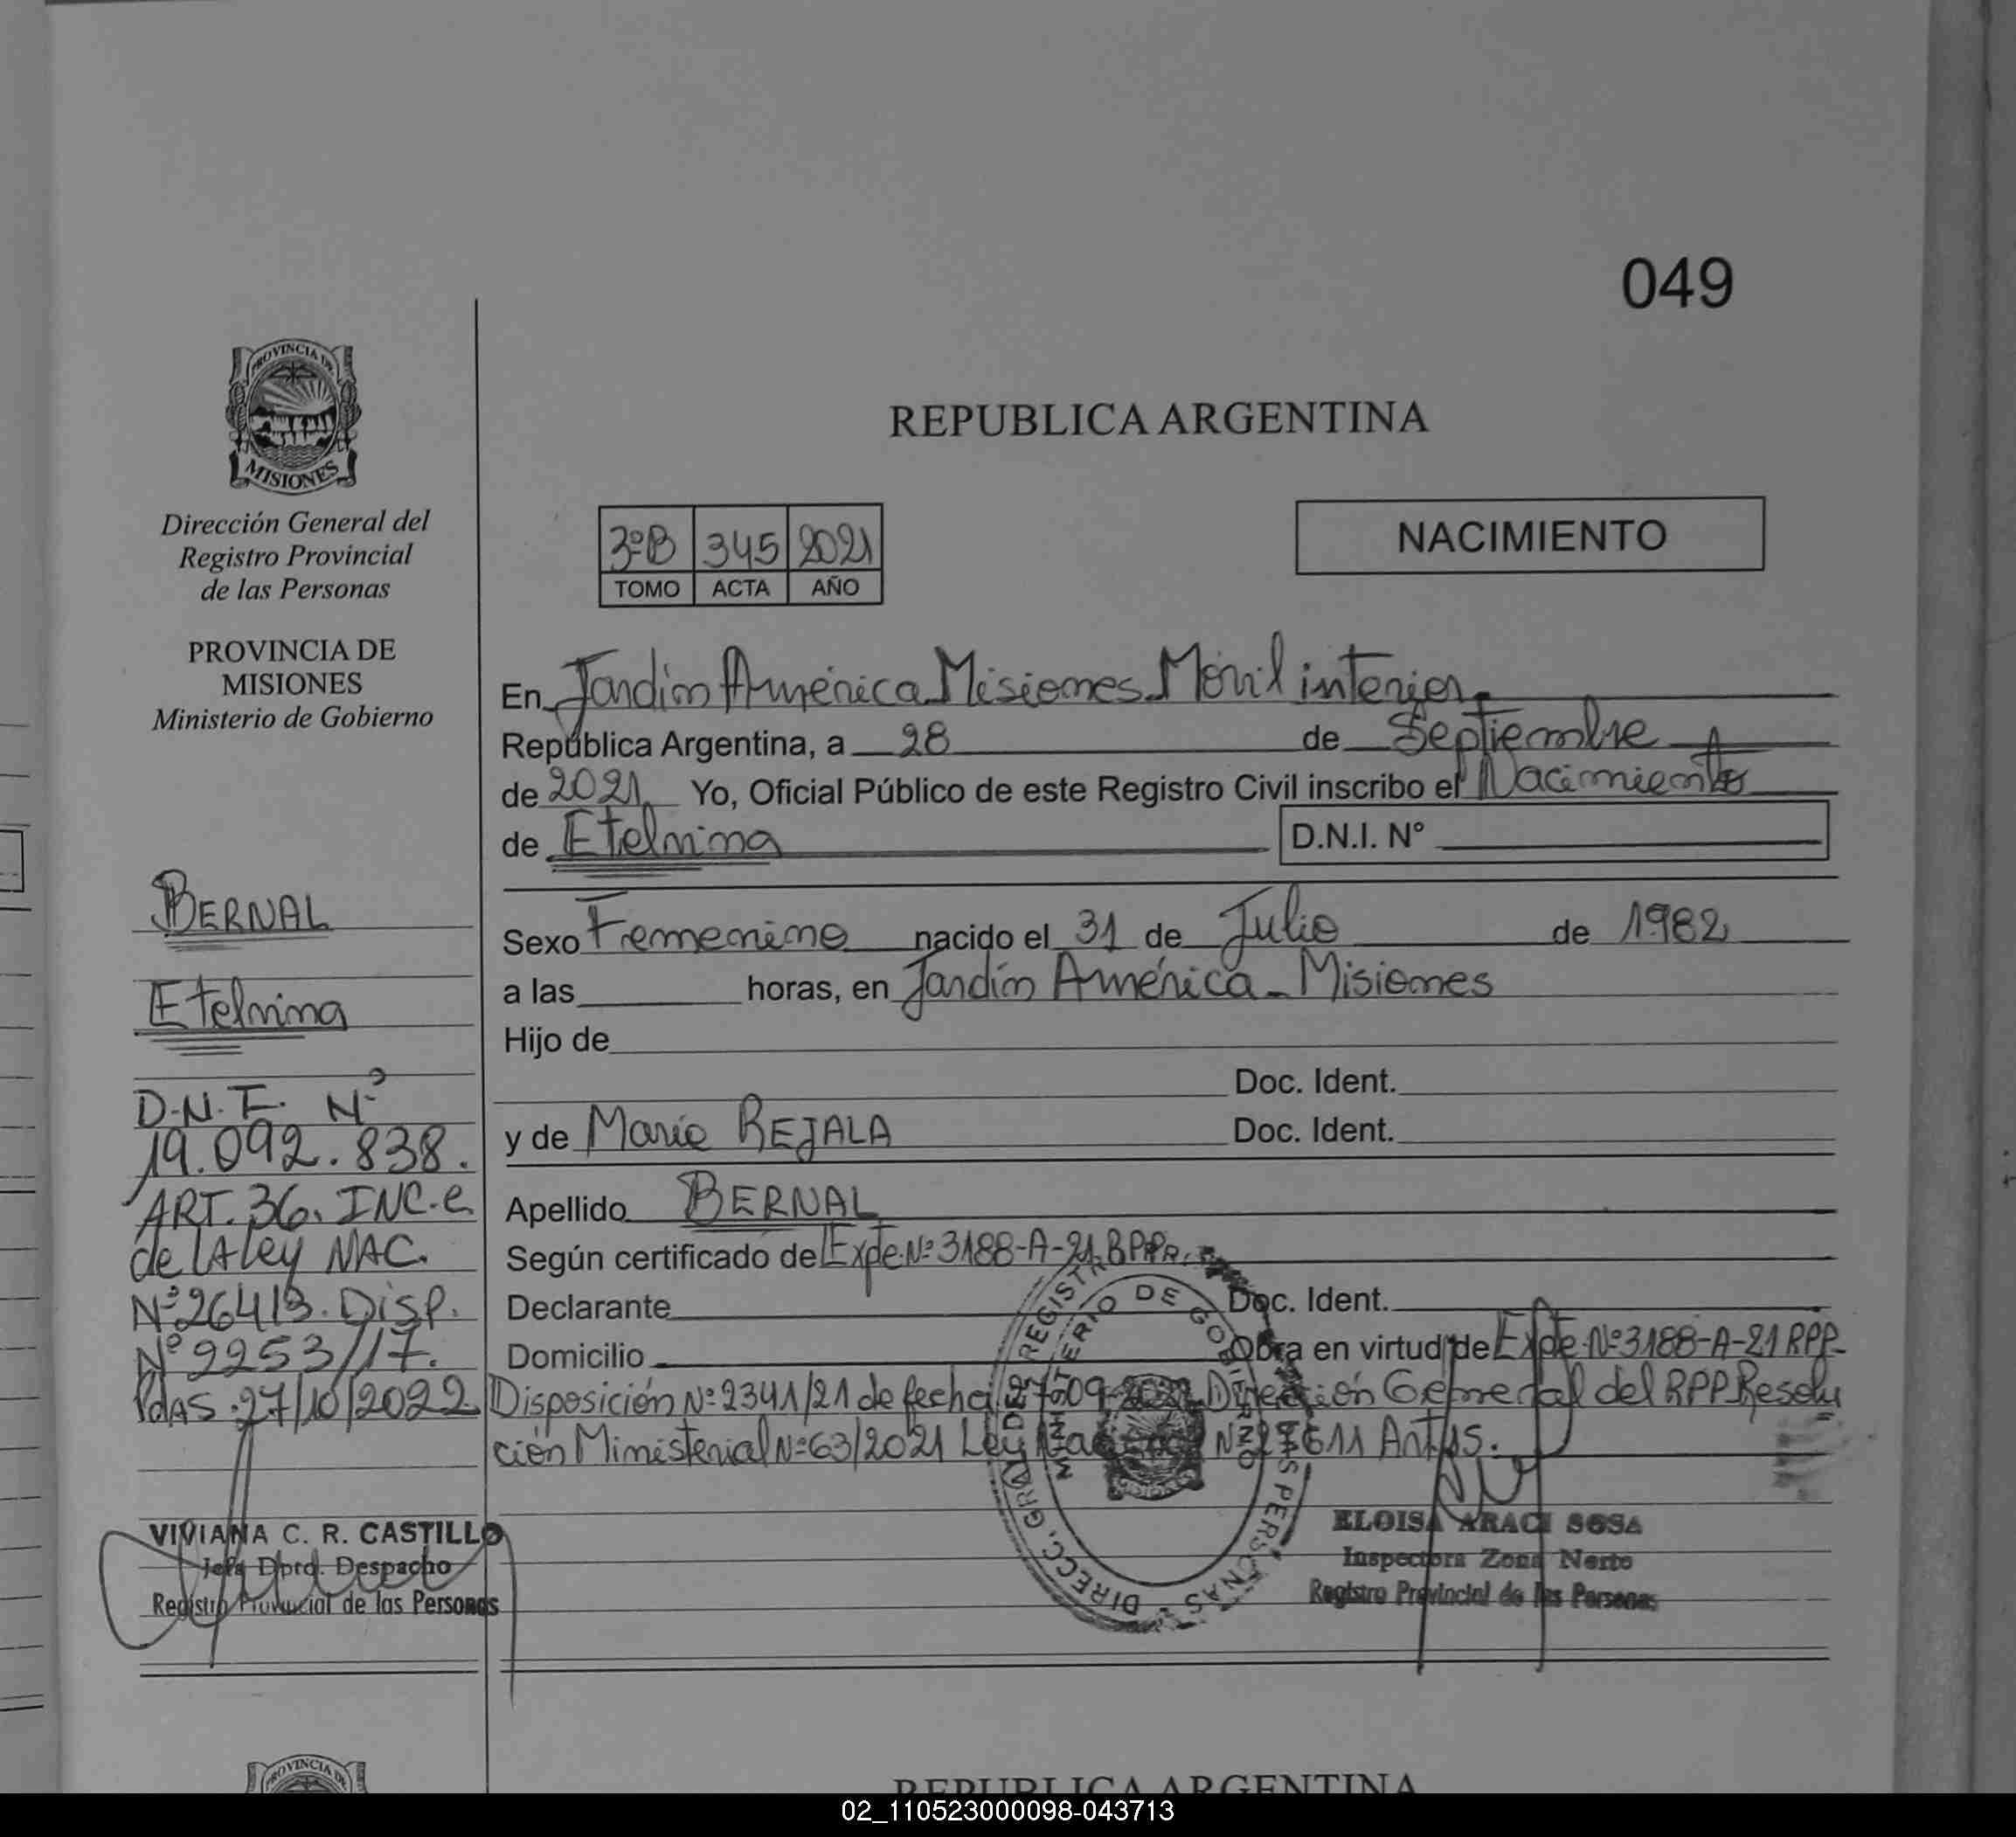 049
PROVINCIA DE
MISIONES
Dirección General del
Registro Provincial
de las Personas
PROVINCIA DE
MISIONES
Ministerio de Gobierno
BERNAL
Etelvina
D.N.I. Nº
19.092.838.
ART. 36. INC. e
de LA ley NAC.
Nº 26413. Disp.
Nº 2253/17.
Pdas. 27/10/2022
VIVIANA C. R. CASTILLO
Jefa Dpto. Despacho
Registro Provincial de las Personas
REPUBLICA ARGENTINA
3º B 345 2021
TOMO ACTA AÑO
NACIMIENTO
En Jardín América Misiones Móvil interior
República Argentina, a 28 de Septiembre
de 2021 Yo, Oficial Público de este Registro Civil inscribo el Nacimiento
de Etelvina D.N.I. Nº
Sexo Femenino nacido el 31 de Julio de 1982
a las horas, en Jardín América - Misiones
Hijo de
Doc. Ident.
y de María REJALA Doc. Ident.
Apellido BERNAL
Según certificado de Expte. Nº 3188-A-21
Declarante Doc. Ident.
Domicilio Obra en virtud de Expte. Nº 3188-A-21 RPP-
Disposición Nº 2341/21 de fecha Dirección General del RPP Resolu
ción Ministerial Nº 63/2021 Ley
ELOISA ARACI SOSA
Inspectora Zona Norte
Registro Provincial de las Personas
PROVINCIA DE
REPUBLICA ARGENTINA
02_110523000098-043713